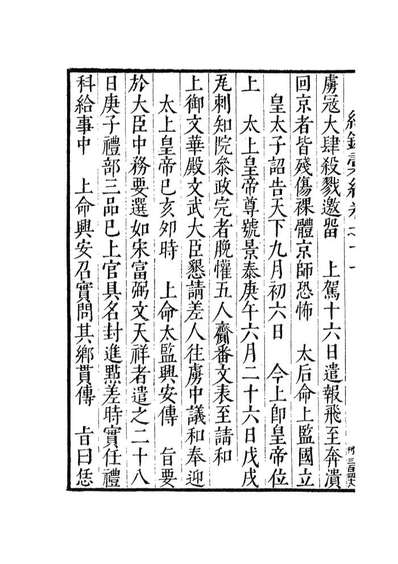 紀錄彙編卷
虜宼大肆殺戮邀畱　上駕十六日遣報飛至奔潰
回京者皆殘傷裸體京師恐怖　太后命上監國立
皇太子詔告天下九月初六日　今上卽皇帝位
上　太上皇帝尊號景泰庚午六月二十六日戊戌
瓦刺知院叅政完者脫懽五人齎番文表至請和
上御文華殿文武大臣懇請差人往虜中議和奉迎
太上皇帝已亥夘時　上命太監興安傳　旨要
於大臣中務要選如宋富弼文天祥者遣之二十八
日庚子禮部三品已上官具名封進點差時實任禮
科給事中　上命興安召實問其鄉貫傳　旨曰恁